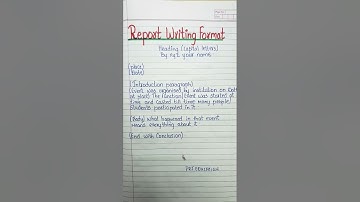 Report Writing Format
Heading (capital letters)
By xyz your name
(place)
(Date)
(Introduction paragraph)
(event was organised by institution on Date
at place) The function/event was started at
time and lasted till time. many people/
students participated in it
(Body) what happened in that event
means everything about it
(End with Conclusion)